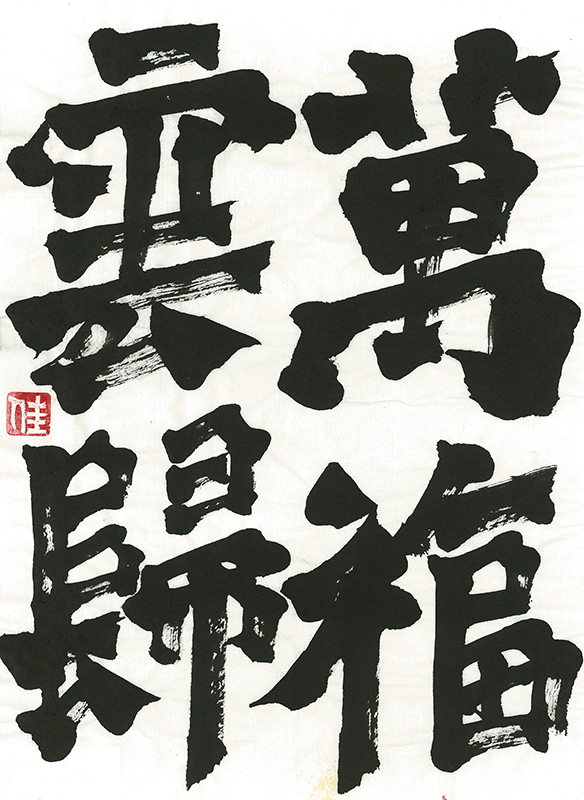 萬福
雲歸
佳